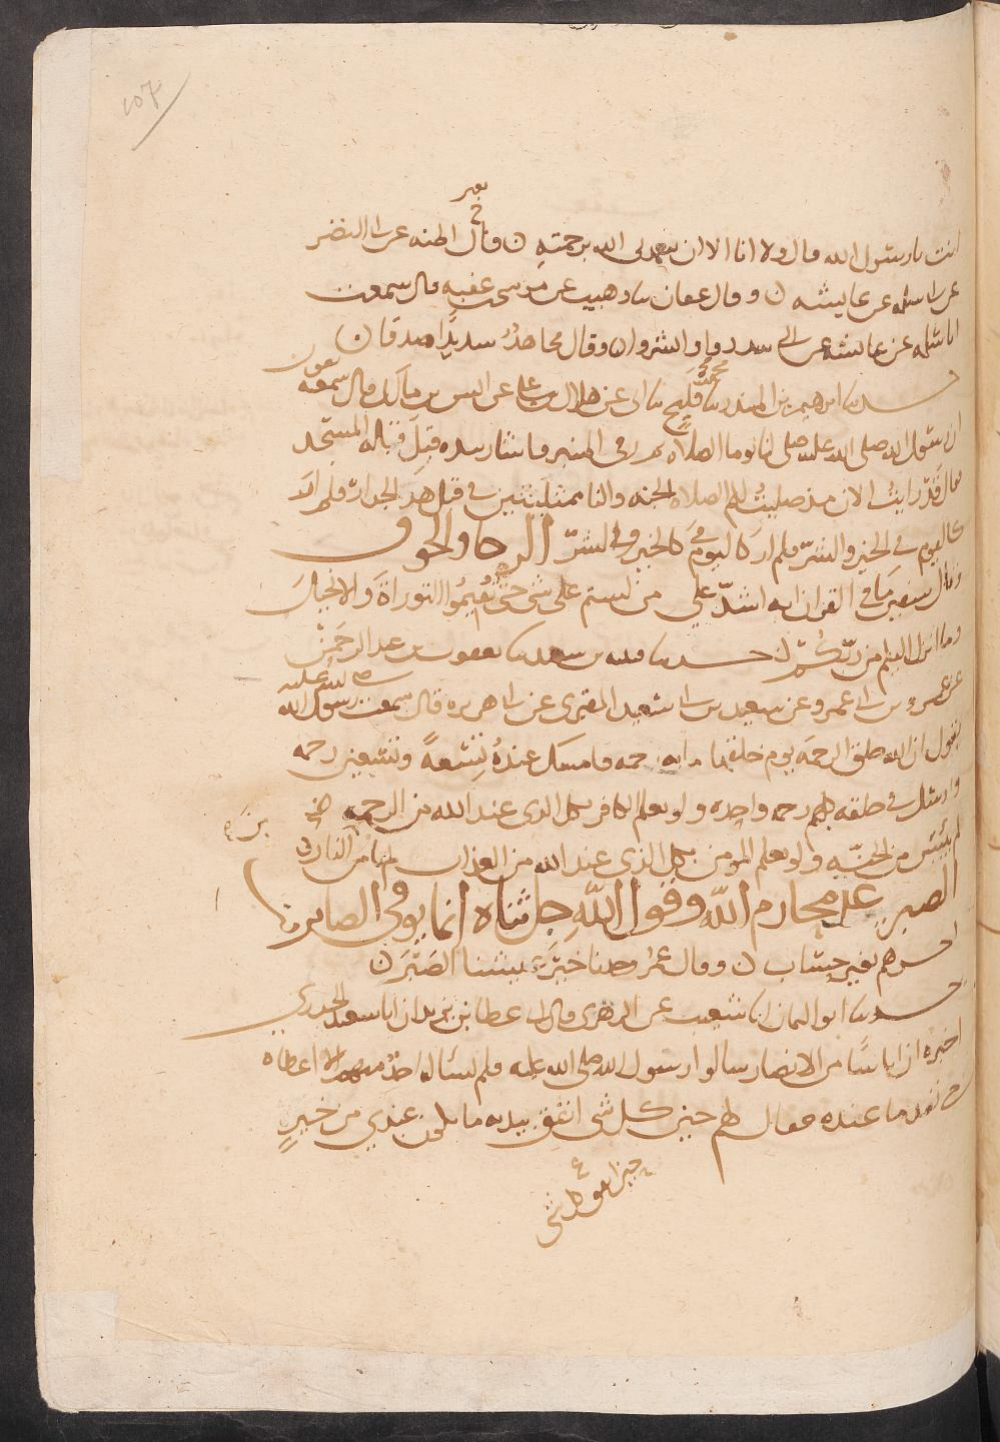 107
يعني
انت يا رسول الله قال ولا انا الا ان يتغمدني الله برحمته ن وقال اظنه عن ابي النضر
عن ابي سلمه عن عايشه ن وقال عفان نا وهيب عن موسى بن عقبه قال سمعت
ابا سلمه عن عايشه عن النبي سددوا وابشروا ن وقال مجاهد سديدا صدقا ن
حدثنا ابرهيم بن المنذر نا محمد بن فليح نا ابي عن هلال بن علي عن انس بن مالك قال سمعته يقول
ان رسول الله صلى الله عليه صلى لنا يوما الصلاه ثم رقي المنبر فاشار بيده قبل قبله المسجد
فقال قد رايت الان منذ صليت لكم الصلاه الجنه والنار ممثلتين في قبل هذا الجدار فلم ار
كاليوم في الخير والشر فلم ار كاليوم في الخير والشر الرجا والخوف
وقال سفين ما في القران ايه اشد علي من لستم على شي حتى تقيموا التوراة والانجيل
وما انزل اليكم من ربكم ن حدثنا قتيبه بن سعيد نا يعقوب بن عبد الرحمن
عن عمرو بن ابي عمرو عن سعيد بن ابي سعيد المقبري عن ابي هريره قال سمعت رسول الله صلى الله عليه
يقول ان الله خلق الرحمه يوم خلقها مايه رحمه فامسك عنده تسعة وتسعين رحمه
وارسل في خلقه كلهم رحمه واحده ولو يعلم الكافر بكل الذي عند الله من الرحمه
لم ييئس من الجنه ولو يعلم المومن بكل الذي عند الله من العذاب لم يامن من النار ن
الصبر عن محارم الله وقول الله جل ثناه انما يوفى الصابرون
اجرهم بغير حساب ن وقال عمر وجدنا خير عيشنا الصبر ن
حدثنا ابو اليمان انا شعيب عن الزهري قال عطا بن يزيد ان ابا سعيد الخدري
اخبره ان اناسا من الانصار سالوا رسول الله صلى الله عليه فلم يساله احد منهم الا اعطاه
حتى نفد ما عنده فقال لهم حين كل شي انفق بيده ما يكون عندي من خير
حين انفق كل شي